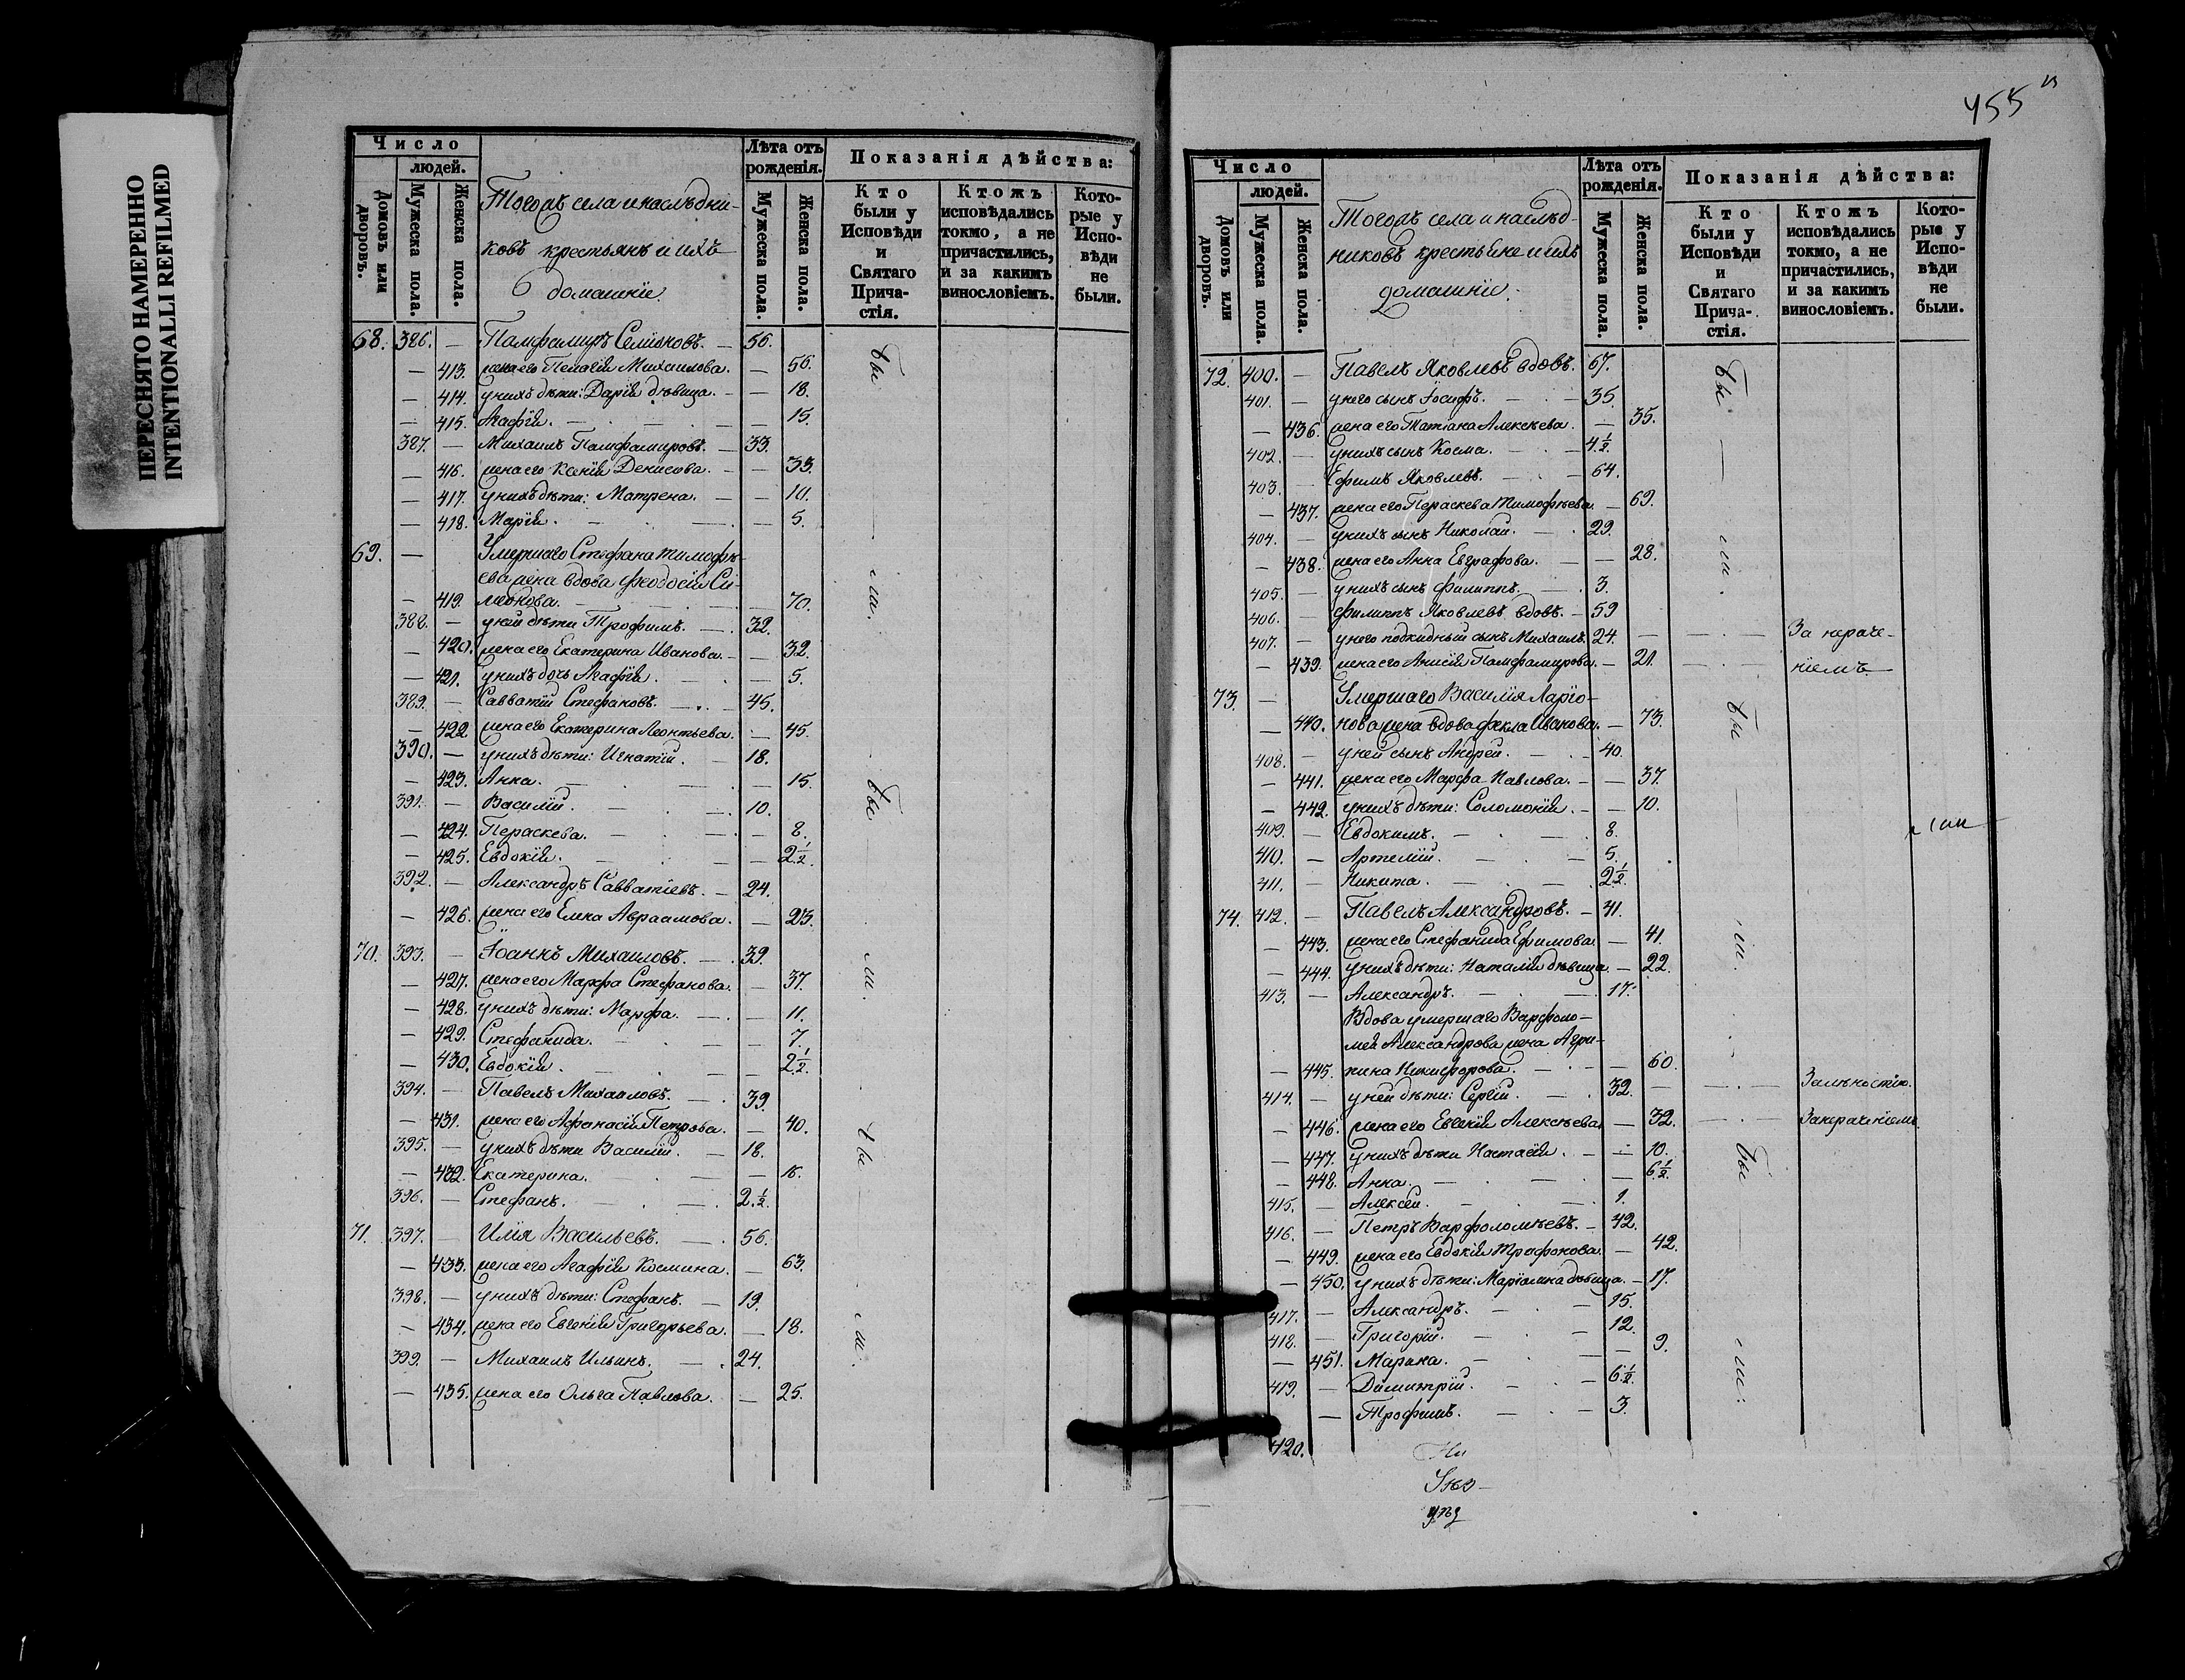 ПЕРЕСНЯТО НАМЕРЕННО
INTENTIONALLI REFILMED
Число
людей.
Домовъ или дворовъ.
Мужеска пола.
Женска пола.
Тогожъ села и наслѣдни-
ковъ крестьянъ и ихъ
домашніи.
Лѣта отъ рожденія.
Мужеска пола.
Женска пола.
Показанія дѣйства:
Кто были у Исповѣди и Святаго Прича-стія.
Ктожъ исповѣдались токмо, а не причастились, и за какимъ винословіемъ.
Кото-рые у Испо-вѣди не были.
68. 386. — Памфамиръ Семіоновъ. — 56.
— 413. жена его Пелагія Михаилова. — 56.
— 414. у нихъ дѣти: Дарія дѣвица. — 18.
— 415. Агафія. — 15.
387. — Михаилъ Памфамировъ. — 33.
— 416. жена его Ксенія Денисова. — 33.
— 417. у нихъ дѣти: Матрена. — 10.
— 418. Марія. — 5.
69. — Умершаго Стефана Тимофѣ-
ева жена вдова Феодосія Си-
— 419. меонова. — 70.
388. — у ней дѣти Трофимъ. — 32.
— 420. жена его Екатерина Иванова. — 32.
— 421. у нихъ дочь Агафія. — 5.
389. — Савватій Стефановъ. — 45.
— 422. жена его Екатерина Леонтьева. — 45.
390. — у нихъ дѣти: Игнатій. — 18.
— 423. Анна. — 15.
391. — Василій. — 10.
— 424. Параскева. — 8.
— 425. Евдокія. — 2½.
392. — Александръ Савватіевъ. — 24.
— 426. жена его Елена Авраамова. — 23.
70. 393. — Іоаннъ Михаиловъ. — 39.
— 427. жена его Марфа Стефанова. — 37.
— 428. у нихъ дѣти: Марфа. — 11.
— 429. Стефанида. — 7.
— 430. Евдокія. — 2½.
394. — Павелъ Михаиловъ. — 39.
— 431. жена его Афанасія Петрова. — 40.
395. — у нихъ дѣти Василій. — 18.
— 432. Екатерина. — 16.
396. — Стефанъ. — 2.½
71. 397. — Илія Васильевъ. — 56.
— 433. жена его Агафія Космина. — 63.
398. — у нихъ дѣти: Стефанъ. — 19.
— 434. жена его Евгенія Григорьева. — 18.
399. — Михаилъ Ильинъ. — 24.
— 435. жена его Ольга Павлова. — 25.
бы — ли.
бы — ли.
бы — ли.
455
Число
людей.
Домовъ или дворовъ.
Мужеска пола.
Женска пола.
Тогожъ села и наслѣд-
никовъ крестьяне и ихъ
домашніи.
Лѣта отъ рожденія.
Мужеска пола.
Женска пола.
Показанія дѣйства:
Кто были у Исповѣди и Святаго Прича-стія.
Ктожъ исповѣдались токмо, а не причастились, и за какимъ винословіемъ.
Кото-рые у Испо-вѣди не были.
72. 400. — Павелъ Яковлевъ вдовъ. 67.
401. — у него сынъ Іосифъ. — 35.
— 436. жена его Татіана Алексѣева. — 35.
402. — у нихъ сынъ Косма. — 4½.
403. — Ефимъ Яковлевъ. — 64.
— 437. жена его Параскева Тимофѣева. — 69.
404. — у нихъ сынъ Николай. — 29.
— 438. жена его Анна Евграфова. — 28.
405. — у нихъ сынъ Филиппъ. — 3.
406. — Филиппъ Яковлевъ вдовъ. — 59
407. — у него подкидный сынъ Михаилъ. 24. — За нераче-
— 439. жена его Анисія Памфамирова. — 21. — ніемъ.
73. — Умершаго Василія Ларіо-
— 440. нова жена вдова Фекла Иванова. — 73.
408. — у ней сынъ Андрей. — 40.
— 441. жена его Марфа Павлова. — 37.
— 442. у нихъ дѣти: Соломонія. — 10.
409. — Евдокимъ. — 8.
410. — Артемій. — 5.
411. — Никита. — 2½.
74. 412. — Павелъ Александровъ. — 41.
— 443. жена его Стефанида Ефимова. — 41.
— 444. у нихъ дѣти: Наталія дѣвица. — 22.
413. — Александръ. — 17.
Вдова умершаго Варфоло-
мея Александрова жена Агри-
— 445. пина Никифорова. — 60.
414. — у ней дѣти: Сергій. — 32. — За лѣностію.
— 446. жена его Евгенія Алексѣева. — 32. — За нераченіемъ.
— 447. у нихъ дѣти Настасія. — 10.
— 448. Анна. — 6½.
415. — Алексей. — 1.
416. — Петръ Варфоломѣевъ. — 42.
— 449. жена его Евдокія Трофонова. — 42.
— 450. у нихъ дѣти: Маріамна дѣвица. — 17.
417. — Александръ. — 15.
418. — Григорій. — 12.
— 451. Марина. — 9.
419. — Димитрій. — 6½.
420. — Трофимъ. — 3.
бы — ли.
бы — ли.
бы — ли.